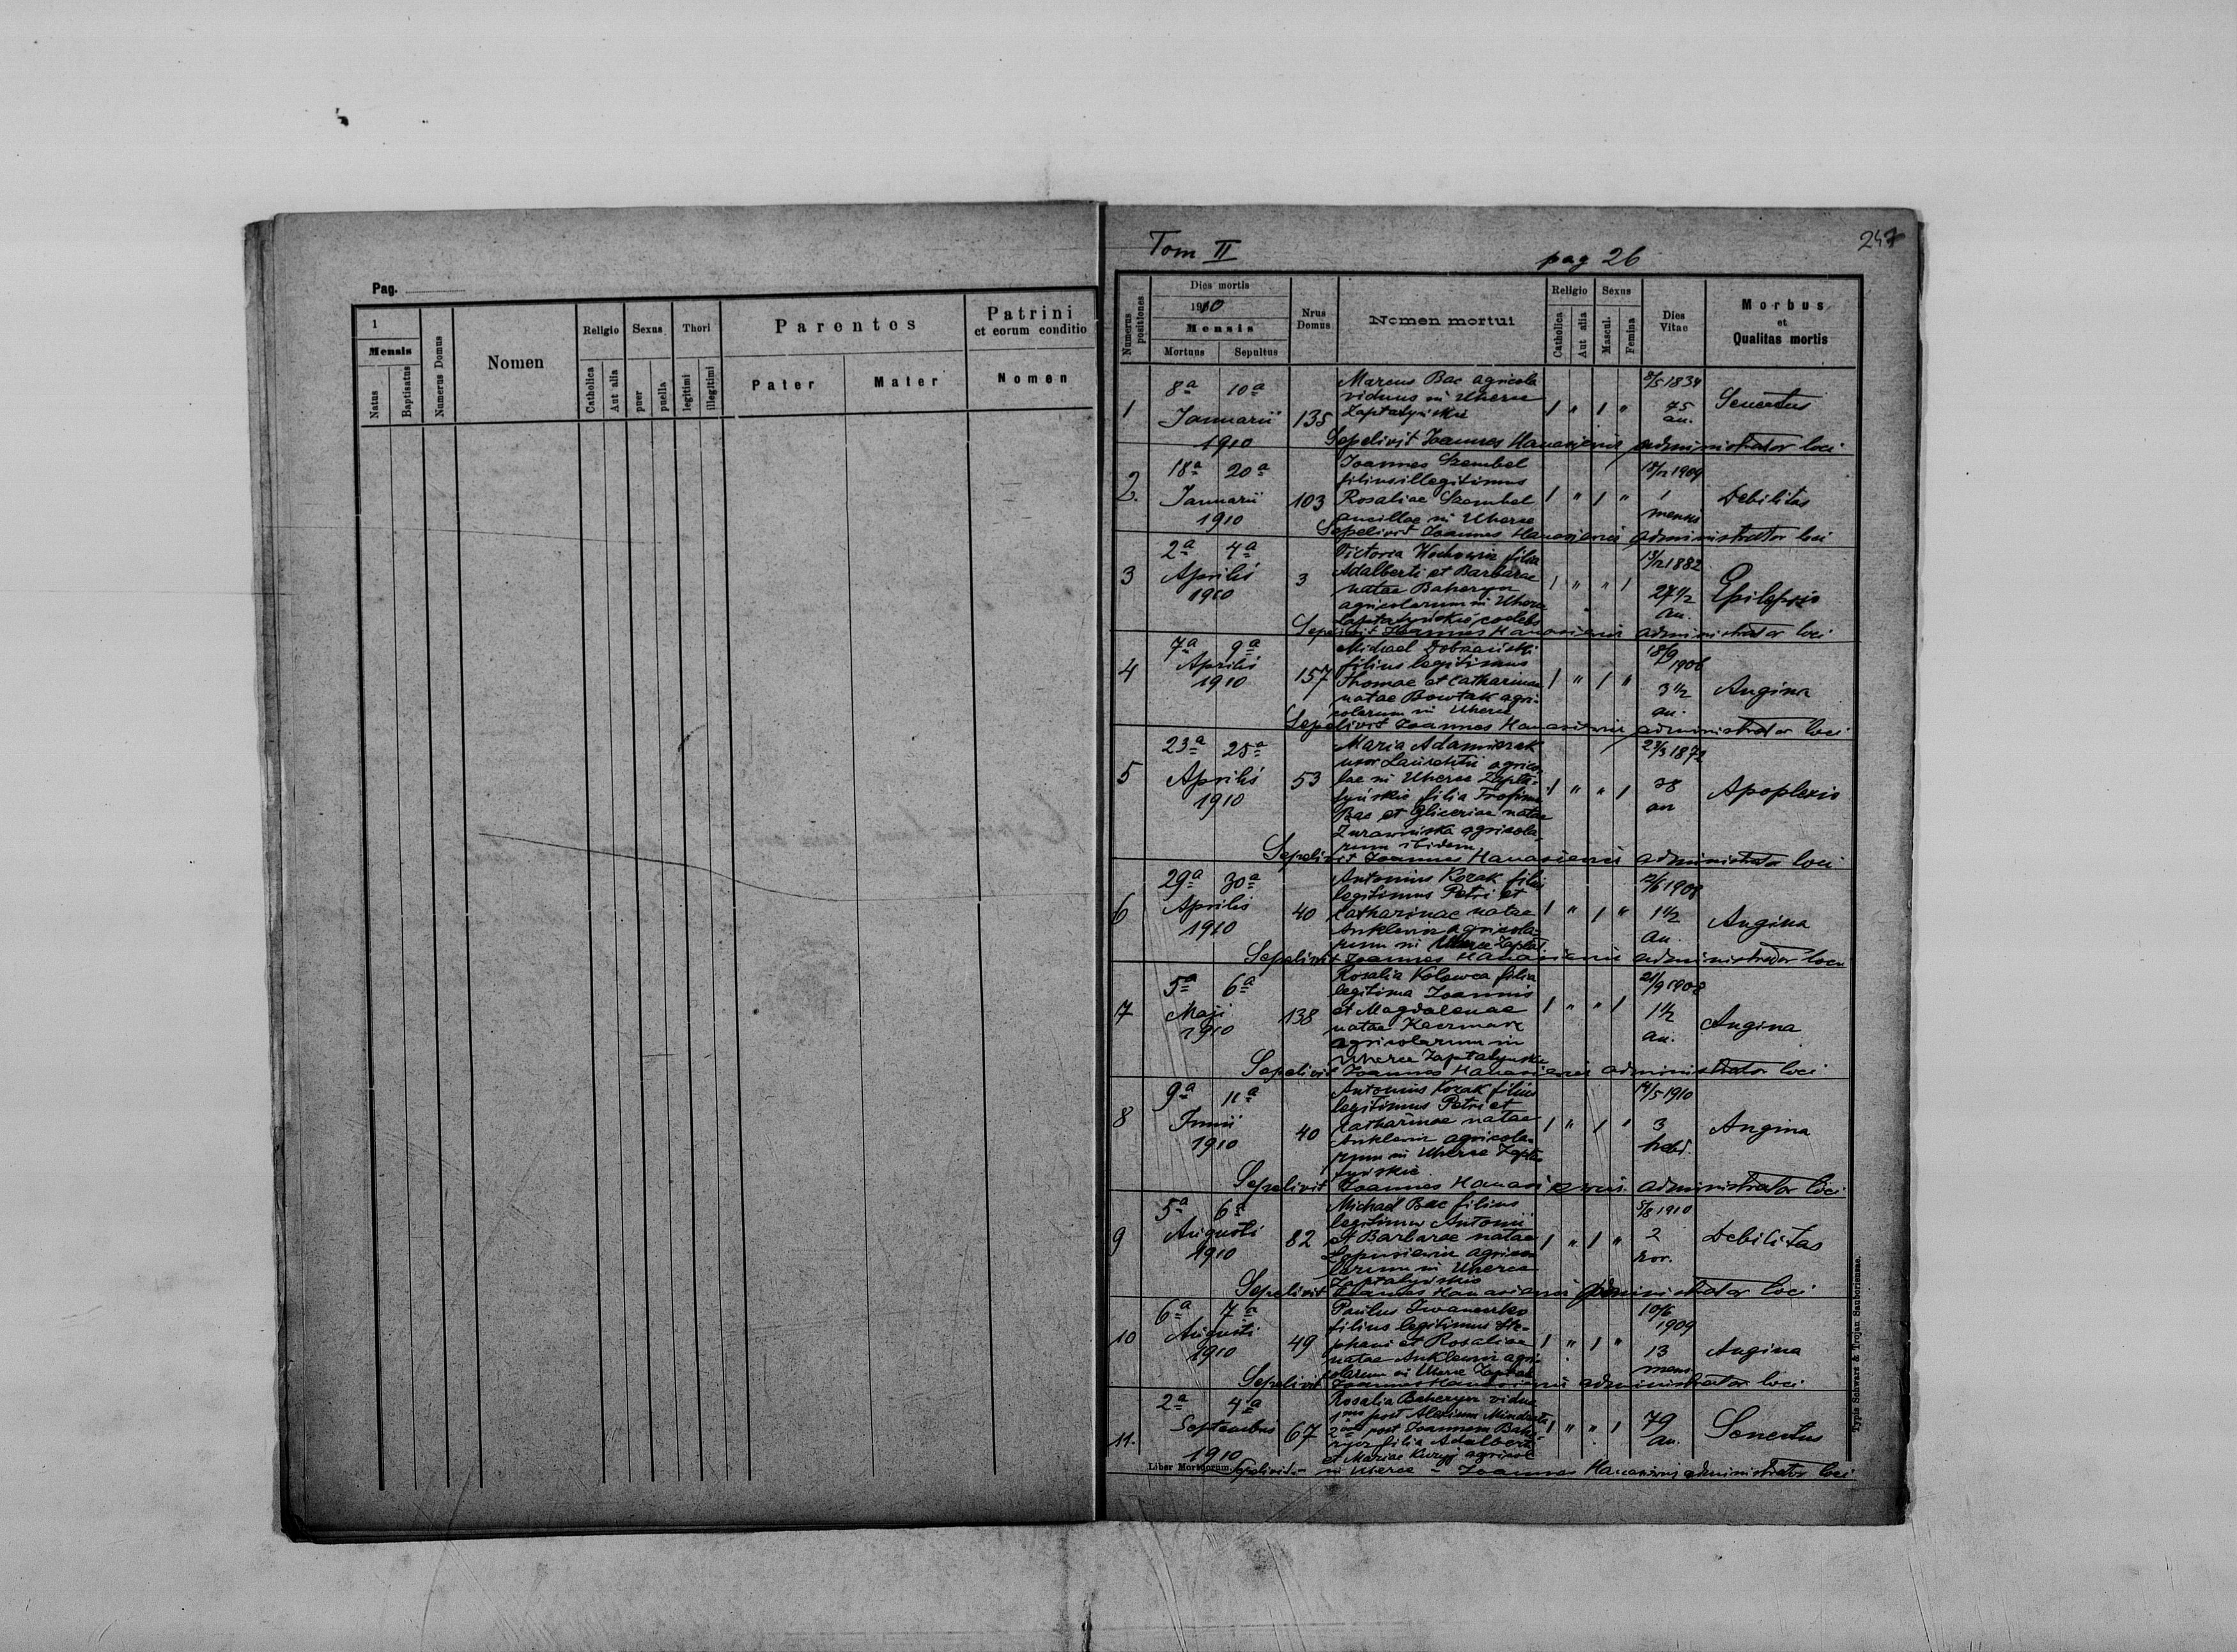 Pag.
1
Mensis
Natus
Baptisatus
Numerus Domus
Nomen
Religio
Catholica
Aut alia
Sexus
puer
puella
Thori
legitimi
illegitimi
Parentes
Pater
Mater
Patrini
et eorum conditio
Nomen
Tom II
pag 26
247
Numerus
positiones
Dies mortis
1910
Mensis
Mortuus
Sepultus
Nrus
Domus
Nomen mortui
Religio
Catholica
Aut alia
Sexus
Mascul.
Femina
Dies
Vitae
Morbus
et
Qualitas mortis
1
8a 10a
Januarii
1910
135
Marcus Bac agricola
viduus in Uherce
Zaptatyńskie
1 " 1 "
8/5 1834
75
an.
Senectus
Sepelivit Joannes Hanasiewicz administrator loci
2.
18a 20a
Januarii
1910
103
Joannes Szembel
filius illegitimus
Rosaliae Szembel
ancillae in Uherce
1 " 1 "
18/12 1909
1
mensis
Debilitas
Sepelivit Joannes Hanasiewicz administrator loci
3
2a 4a
Aprilis
1910
3
Victoria filia
Adalberti et Barbarae
natae Baheryn
agricolarum in Uherce
Zaptatyńskie coelebs
1 " " 1
13/12 1882
27 1/2
an.
Epilepsis
Sepelivit Joannes Hanasiewicz administrator loci
4
7a 9a
Aprilis
1910
157
Michael Dobrzański
filius legitimus
Thomae et Catharinae
natae Bowtak agri-
colarum in Uherce
1 " 1 "
18/9
1906
3 1/2
an.
Angina
Sepelivit Joannes Hanasiewicz administrator loci
5
23a 25a
Aprilis
1910
53
Maria Adamiszak
uxor Laurentii agrico-
lae in Uherce Zapta-
tyńskie filia Trofimi
Bac et Gliceriae natae
Żurawińska agricola-
rum ibidem
1 " " 1
23/3 1872
38
an
Apoplexis
Sepelivit Joannes Hanasiewicz administrator loci
6
29a 30a
Aprilis
1910
40
Antonius Kozak filius
legitimus Petri et
Catharinae natae
Anklewicz agricola-
rum in Uherce Zaptat.
1 " 1 "
1908
1 1/2
an.
Angina
Sepelivit Joannes Hanasiewicz administrator loci
7
5a 6a
Maji
1910
138
Rosalia Kolowca filia
legitima Joannis
et Magdalenae
natae Kaczmark
agricolarum in
Uherce Zaptatynskie
1 " " 1
21/9 1908
1 1/2
an.
Angina
Sepelivit Joannes Hanasiewicz administrator loci
8
9a 11a
Junii
1910
40
Antonius Kozak filius
legitimus Petri et
Catharinae natae
Anklewicz agricola-
rum in Uherce Zapta-
tyńskie
1 " 1 "
14/5 1910
3
hebd.
Angina
Sepelivit Joannes Hanasiewicz administrator loci
9
5a 6a
Augusti
1910
82
Michael Bac filius
legitimus Antonii
et Barbarae natae
agrico-
larum in Uherce
Zaptatyńskie
1 " 1 "
5/8 1910
2
hor.
Debilitas
Sepelivit Joannes Hanasiewicz administrator loci
10
6a 7a
Augusti
1910
49
Paulus Iwanenko
filius legitimus Ste-
phani et Rosaliae
natae Anklewicz agri-
colarum in Uherce Zaptat
1 " 1 "
10/6
1909
13
mens
Angina
Sepelivit Joannes Hanasiewicz administrator loci
11.
2a 4a
Septembris
1910
67
Rosalia Baheryn vidua
1mo post Alexium
2do post Joannem Bahe-
ryn filia Adalberti
et Mariae agricol
1 " " 1
79
an.
Senectus
Liber Mortuorum.
Sepelivit - in Uherce - Joannes Hanasiewicz administrator loci
Typis Schwarz & Trojan Samboriensae.